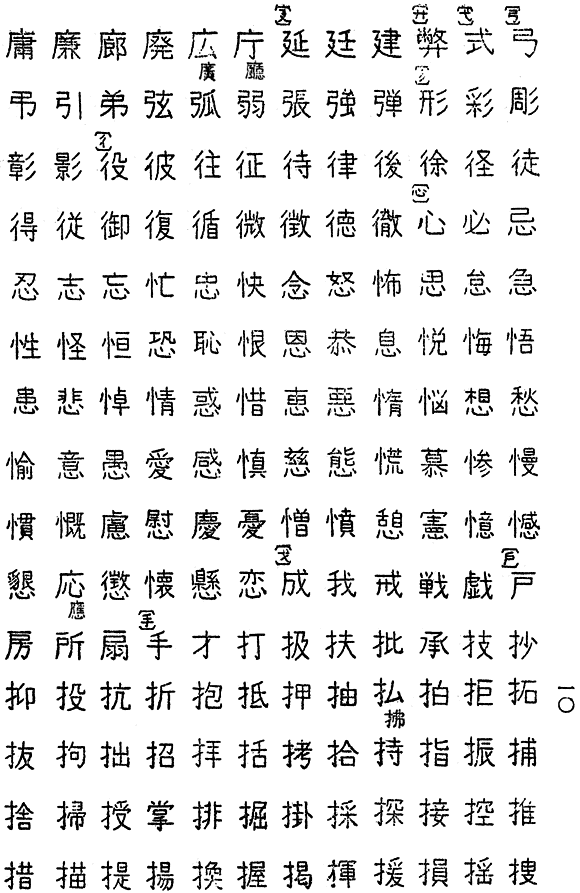 庸廉廊廃広(廣)庁(廳)〔廴〕延廷建〔廾〕弊〔弋〕式〔弓〕弓
弔引弟弦弧弱張強弾〔彡〕形彩彫
彰影〔彳〕役彼往征待律後徐径徒
得従御復循微徴徳徹〔心〕心必忌
忍志忘忙忠快念怒怖思怠急
性怪恒恐恥恨恩恭息悦悔悟
患悲悼情惑惜恵悪惰悩想愁
愉意愚愛感慎慈態慌慕惨慢
慣慨慮慰慶憂憎憤憩憲憶憾
懇応(應)懲懐懸恋〔戈〕成我戒戦戯〔戸〕戸
房所扇〔手〕手才打扱扶批承技抄
抑投抗折抱抵押抽払(拂)拍拒拓
抜拘拙招拝括拷拾持指振捕
捨掃授掌排掘掛採探接控推
措描提揚換握掲揮援損揺捜
一〇